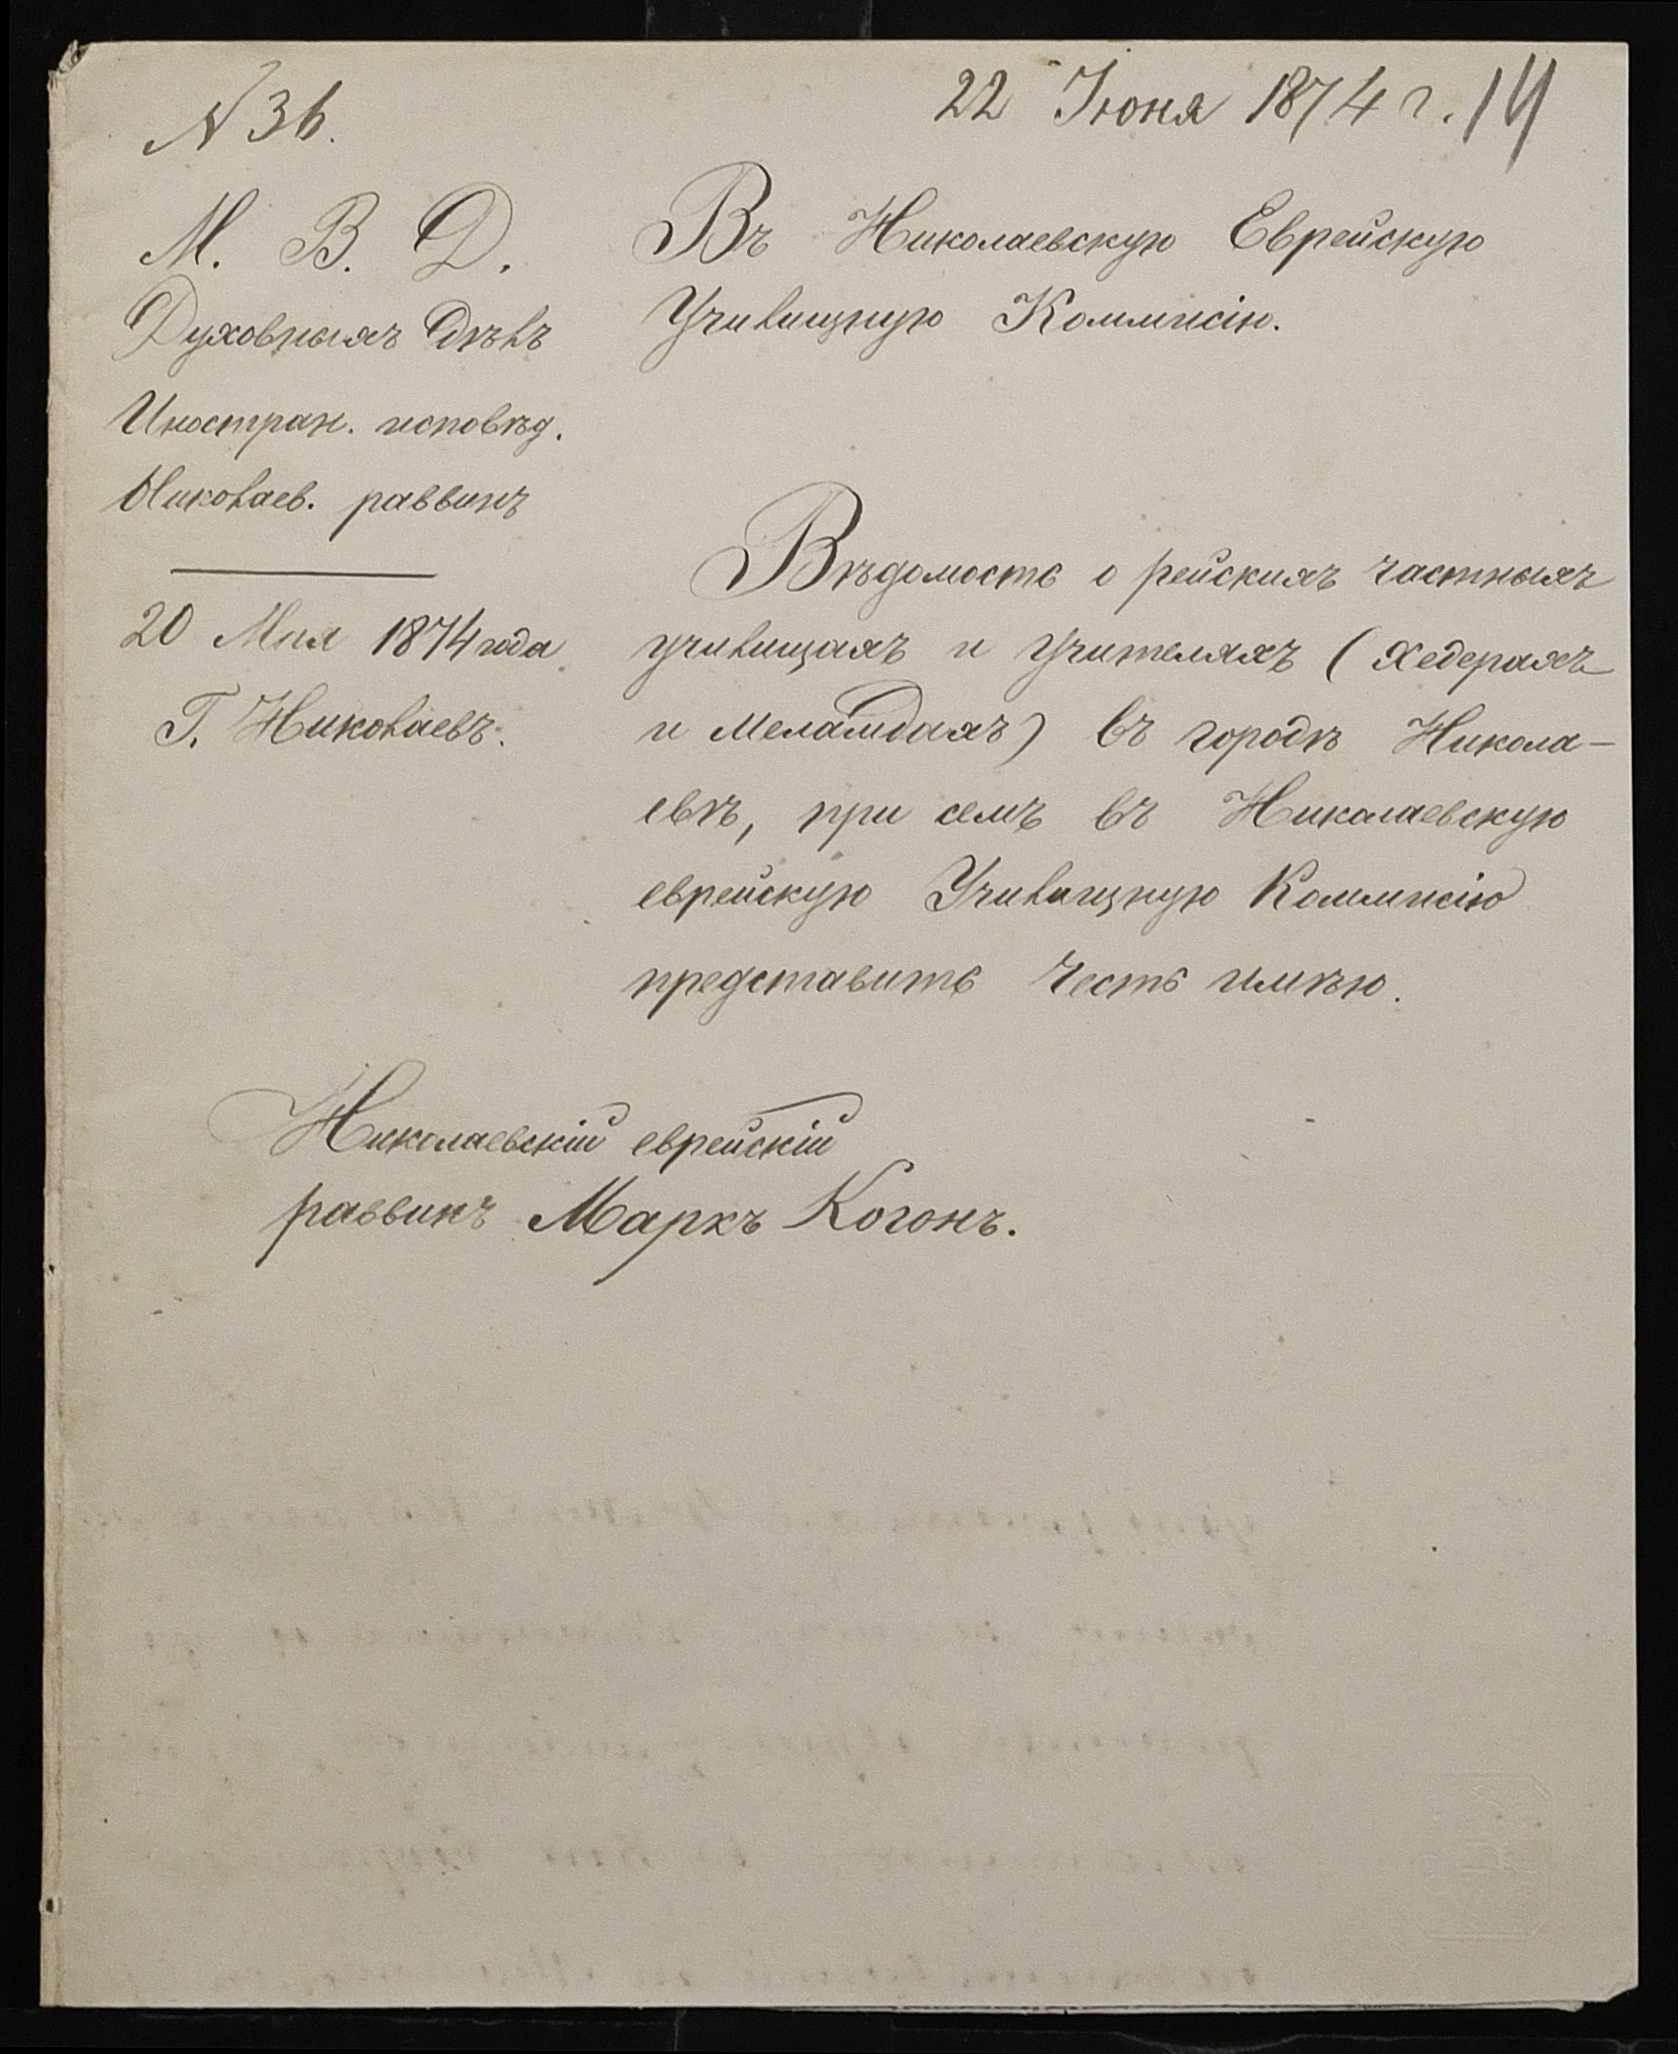 № 36.
22 Іюня 1874 г. 14
М. В. Д.
Духовныхъ дѣлъ
Иностран. исповѣд.
Николаев. раввинъ
20 Мая 1874 года
Г. Николаевъ.
Въ Николаевскую Еврейскую
Училищную Коммисію.
Вѣдомость о рейскихъ частныхъ
училищахъ и учителяхъ (хедерахъ
и Меламдахъ) въ городѣ Никола-
евѣ, при семъ въ Николаевскую
еврейскую Училищную Коммисію
представить честь имѣю.
Николаевскій еврейскій
раввинъ Маркъ Когонъ.